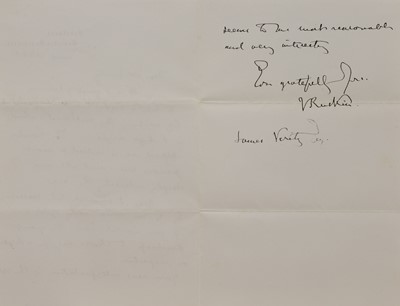 seems to me most reasonable
and very interesting
Ever gratefully Yrs.
J Ruskin
James Verity Esq.